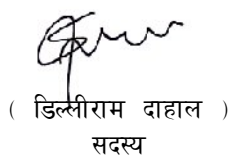 ( डिल्लीराम दाहाल )
सदस्य